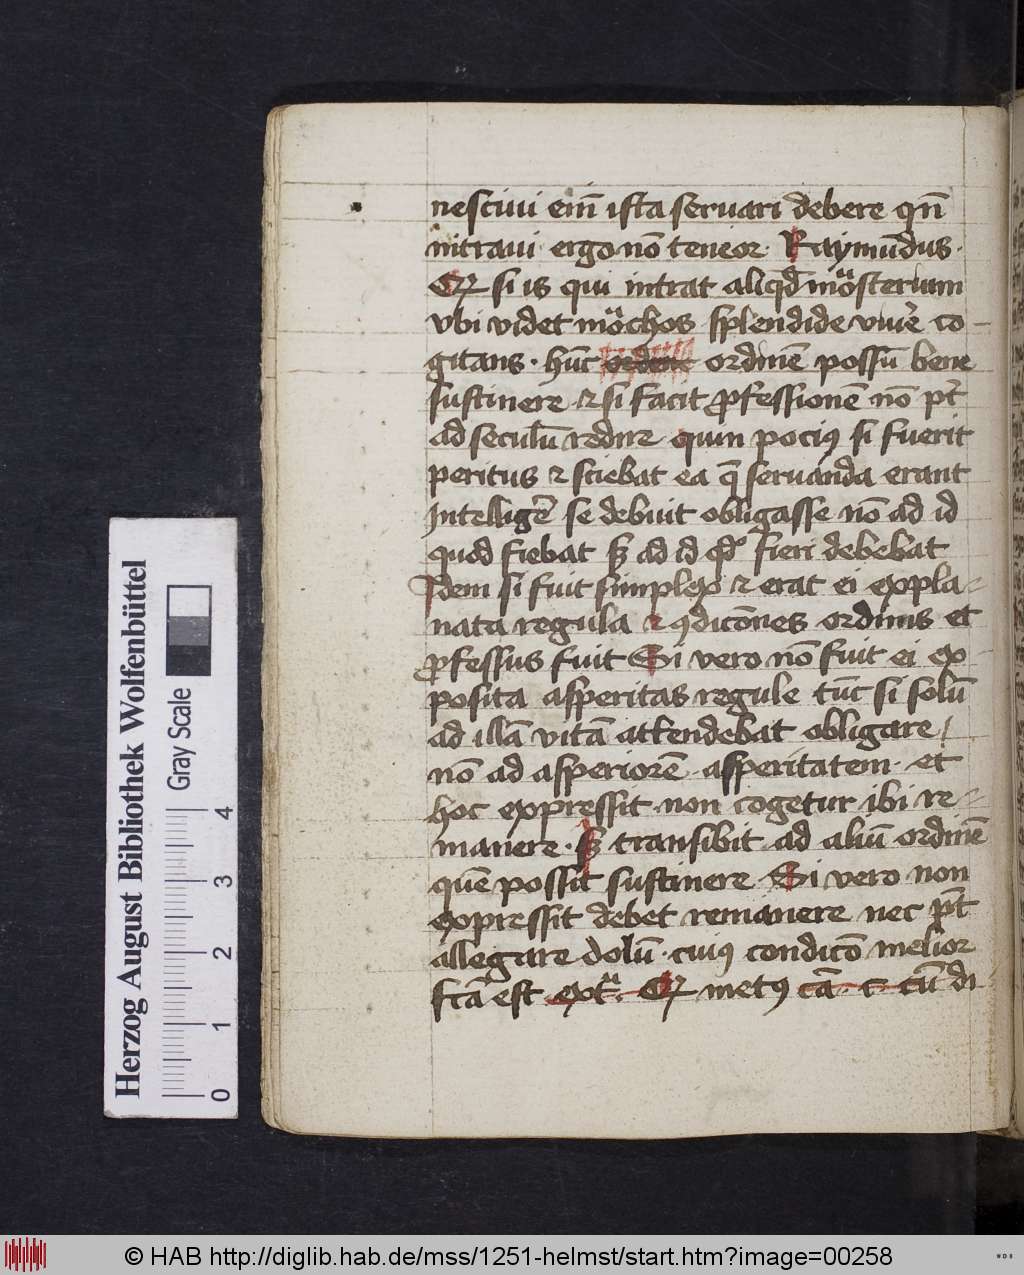 nesciui eni̅ ista seruari debere qn̅
intraui · ergo no̅ teneor · Raymu̅dus ·
si is qui intrat aliqd̅ mo̅steriu̅m
vbi videt mo̅chos splendide viue̅ co-
gitans · hu̅c ordene ordine̅ possu̅ bene
sustinere · et si facit ꝓfessione̅ no̅ pt̅
ad seculu̅ redire quin pociꝰ si fuerit
peritus et sciebat ea q̅ seruanda erant
Intellige̅ se debuit obligasse no̅ ad id
quod fiebat sꝫ ad id qd̅ fieri debebat
Idem si fuit simplex et erat ei expla-
nata regula et ꝯdico̅nes ordinis et
ꝓfessus fuit Si vero no̅ fuit ei ex-
posita asperitas regule tu̅c si solu̅
ad illa̅ vita̅ attendebat obligare /
no̅ ad asperiore̅ · asperitatem · et
hoc expressit · non cogetur ibi re-
manere · sꝫ transibit ad aliu̅ ordine̅
que̅ possit sustinere Si vero non
expressit debet remanere nec pt̅
allegare dolu̅ · cuiꝰ condico̅ melior
fca̅ est ext̅ · metꝰ ca̅ · c · cu̅ di
Herzog August Bibliothek Wolfenbüttel
Gray Scale
0 1 2 3 4
© HAB http://diglib.hab.de/mss/1251-helmst/start.htm?image=00258